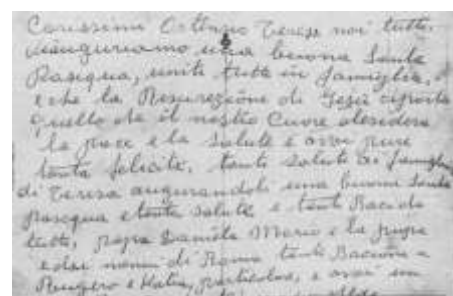 Carissimi Ortensio Teresa noi tutti
auguriamo una buona Santa
Pasqua, uniti tutti in famiglia,
e che la Resurezione di Gesù ci porta
quello che il nostro Cuore desidera
la pace e la salute e a voi pure
tanta felicità, tanti saluti ai famigliari
di Teresa augurandoli una buona Santa
pasqua e tanta salute e tanti Baci da
tutti, papa Daniela Mario e la pupa
e dai nonni di Roma tanti Bacioni a
Ruggero e Katia, particolar, e a voi un